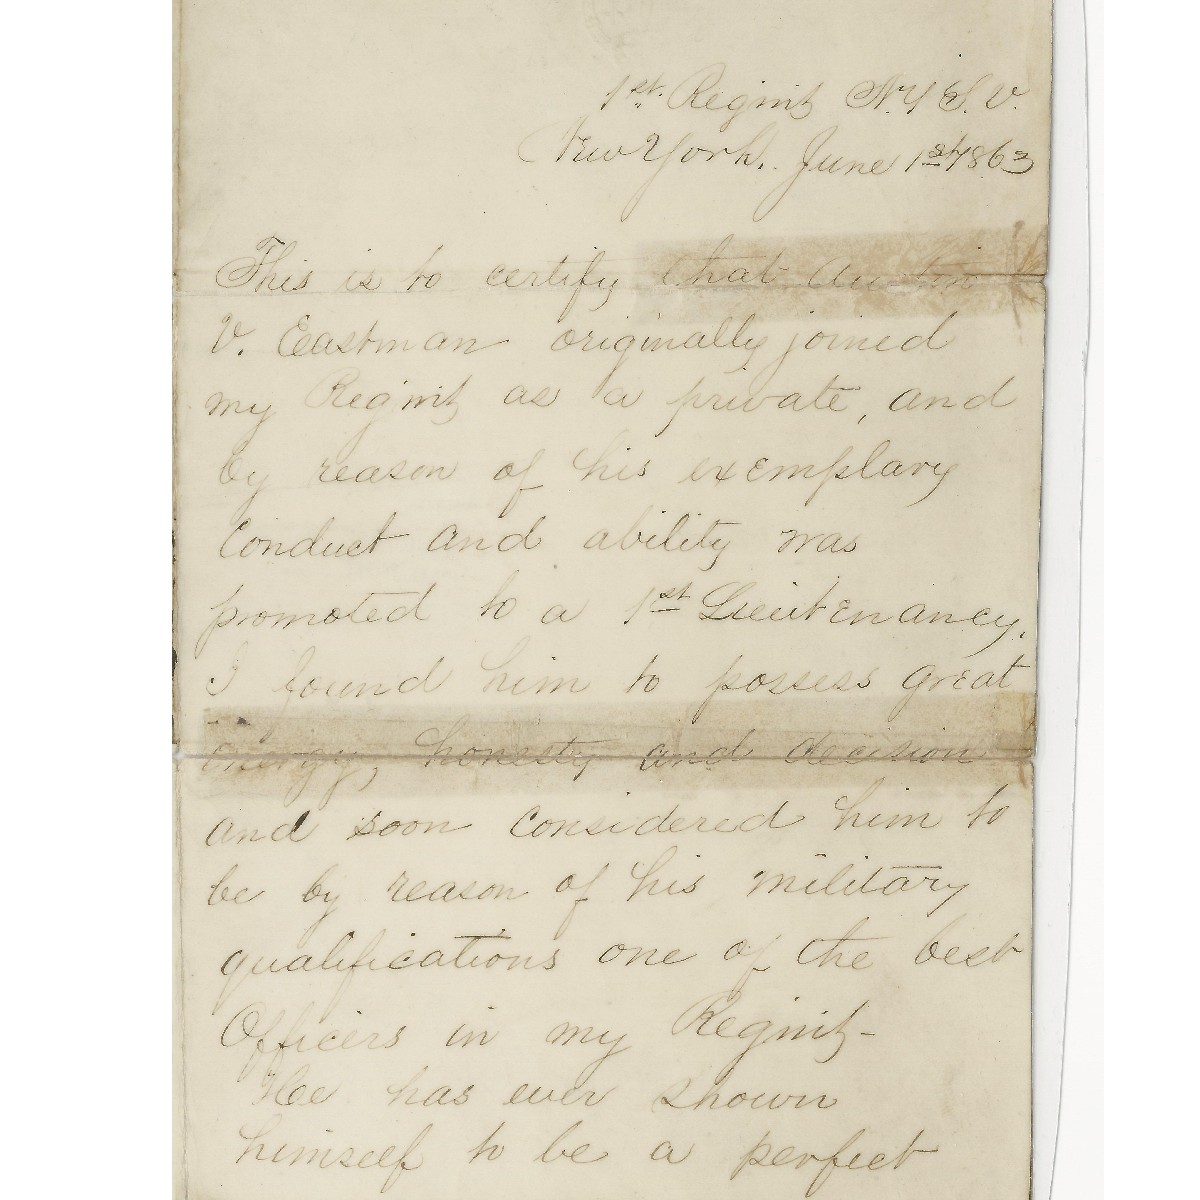 1st. Regmt N.Y.S.V.
New York. June 1st 1863
This is to certify that Austin
V. Eastman originally joined
my Regmt as a private, and
by reason of his exemplary
conduct and ability was
promoted to a 1st Lieutenancy.
I found him to possess great
energy, honesty and decision
and soon considered him to
be by reason of his military
qualifications one of the best
Officers in my Regmt-
He has ever shown
himself to be a perfect